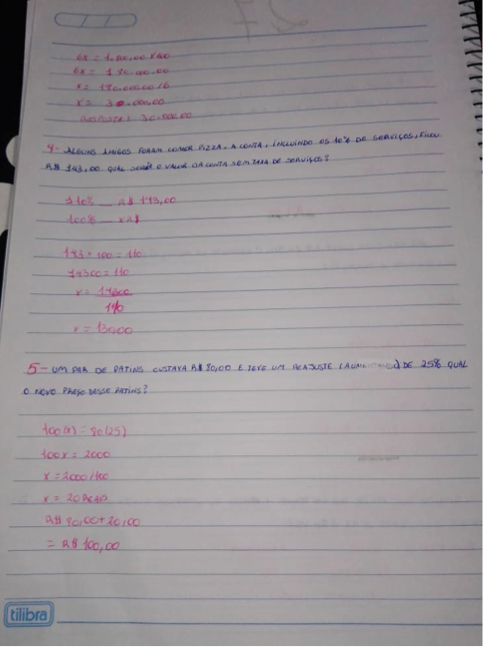 6x = 180.000.00
x = 180.000.00/6
x = 30.000.00
RESPOSTA: 30.000.00
4- ALGUNS AMIGOS FORAM COMER PIZZA. A CONTA, INCLUINDO OS 10% DE SERVIÇOS, FICOU
R$ 143,00 QUAL SERÁ O VALOR DA CONTA SEM TAXA DE SERVIÇOS?
110% __ R$ 143,00
100% __ x R$
143 * 100 = 110
14300 = 110
x = 14300
110
x = 130,00
5- UM PAR DE PATINS CUSTAVA R$ 80,00 E TEVE UM REAJUSTE (AUMENTANDO) DE 25% QUAL
O NOVO PREÇO DESSE PATINS?
100(x) = 80(25)
100x = 2000
x = 2000/100
x = 20
R$ 80,00 + 20,00
= R$ 100,00
tilibra